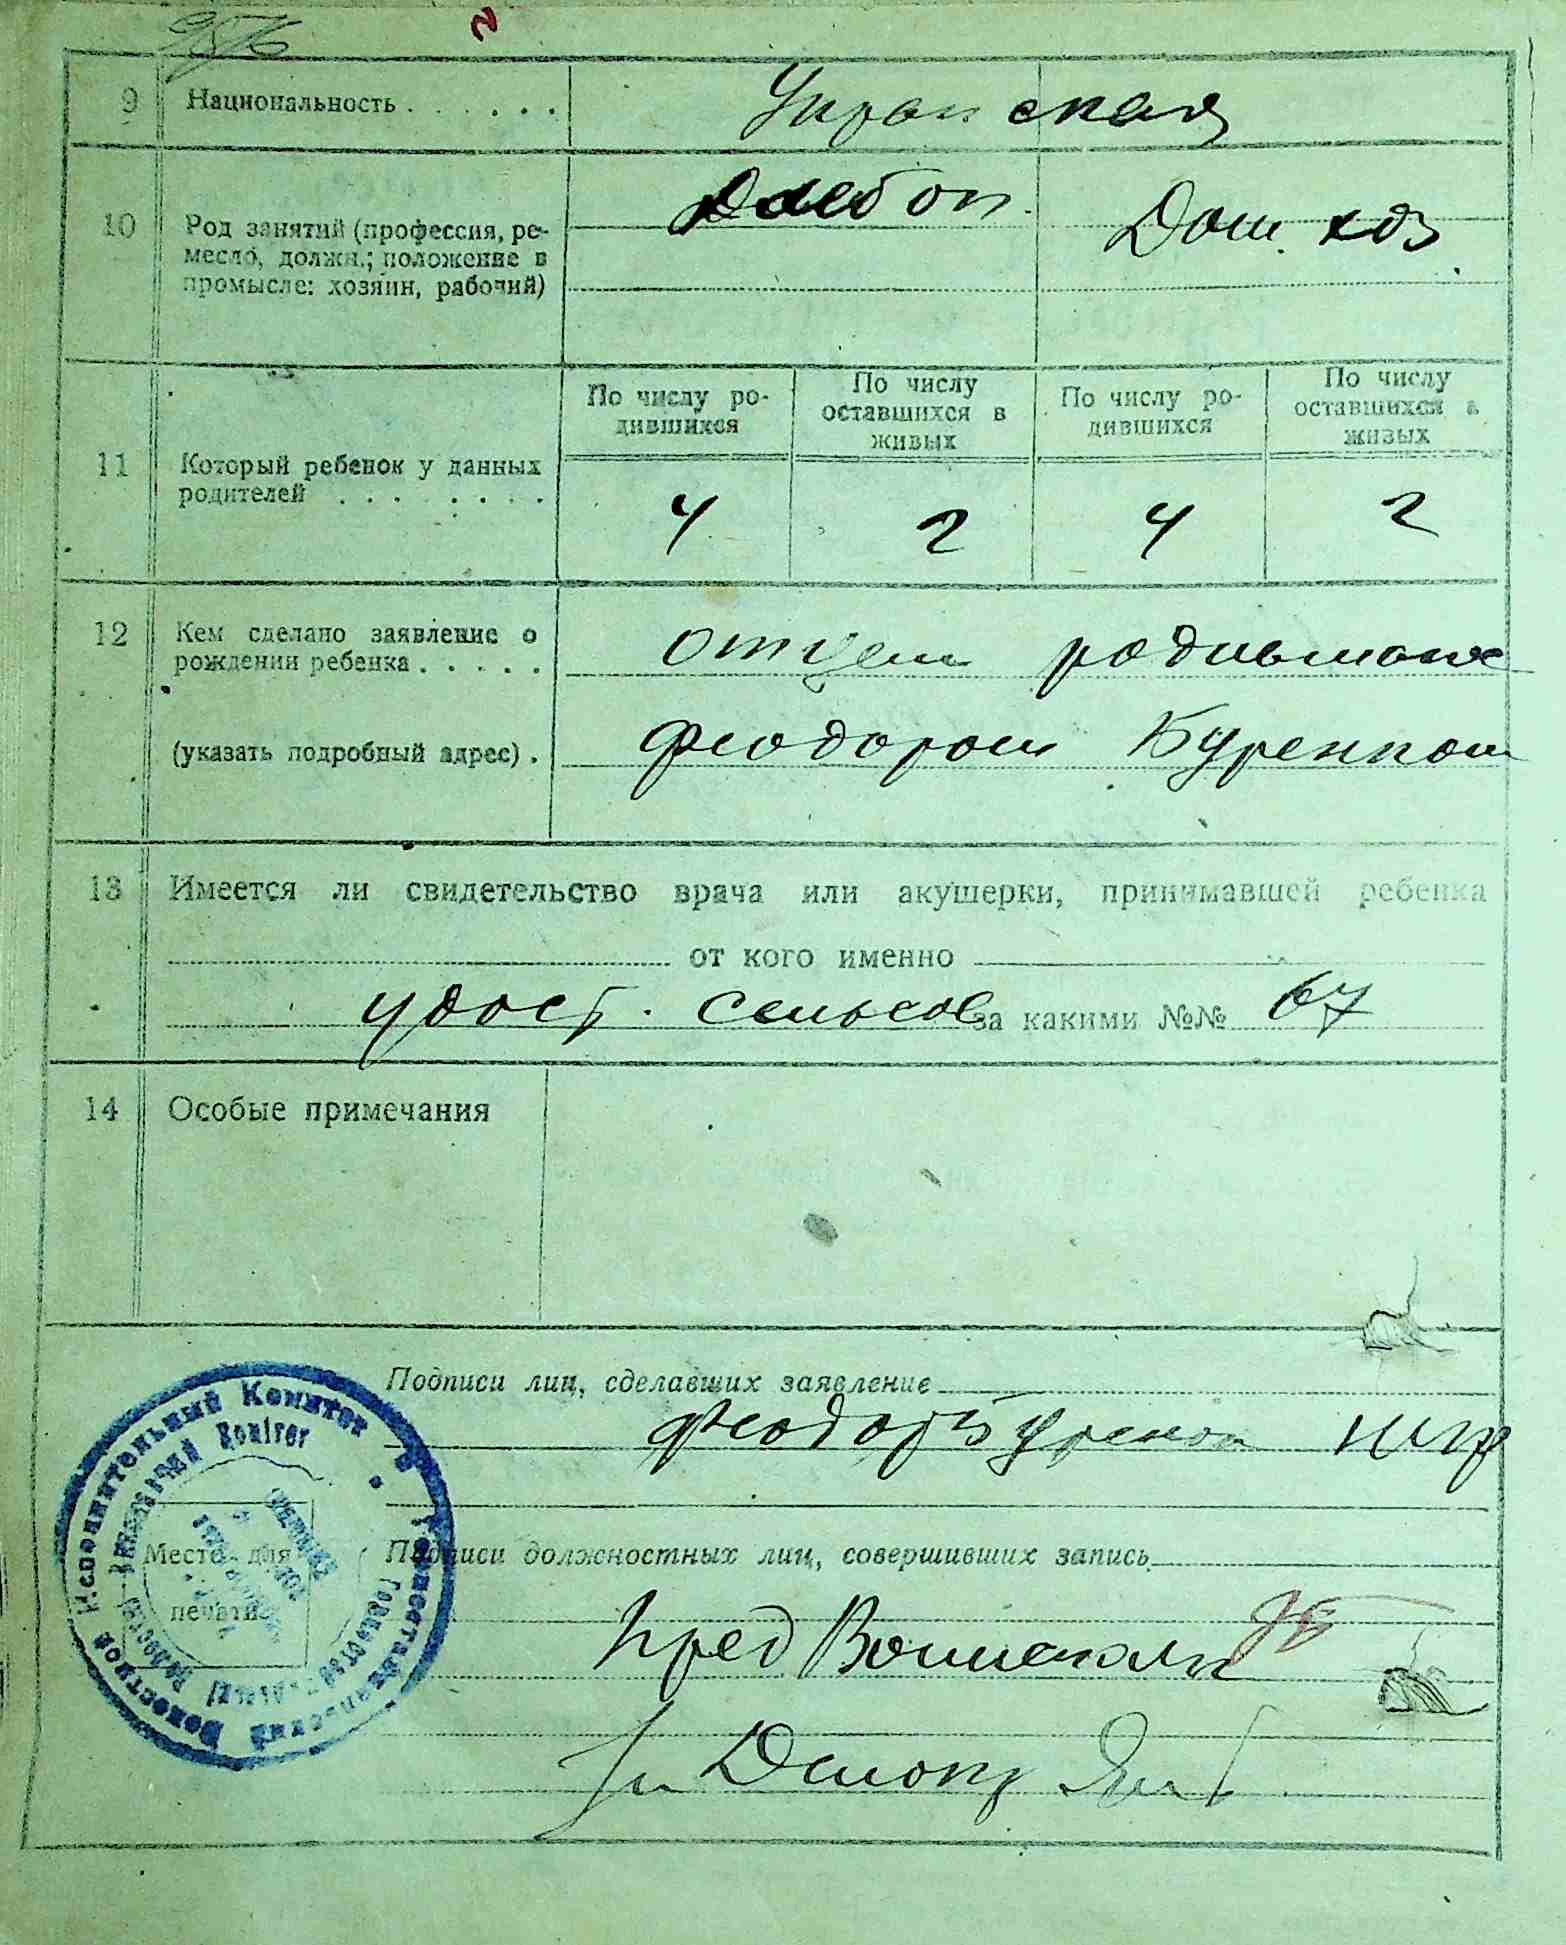 9 Национальность . . . . . . Украинская
10 Род занятий (профессия, ре-
месло, должн.; положение в
промысле: хозяин, рабочий)
Хлебоп. Дом. хоз.
11 Который ребенок у данных
родителей . . . . . . .
По числу ро-
дившихся
По числу
оставшихся в
живых
По числу ро-
дившихся
По числу
оставшихся в
живых
4 2 4 2
12 Кем сделано заявление о
рождении ребенка . . . . .
отцем родившаяс
(указать подробный адрес) .
Феодором Буренком
13 Имеется ли свидетельство врача или акушерки, принимавшей ребенка
от кого именно
удост. сельсов за какими №№ 67
14 Особые примечания
Подписи лиц, сделавших заявление
Феодор Буренок
Место для
печати
Подписи должностных лиц, совершивших запись
Пред Волисполк
Волостной Исполнительный Комитет